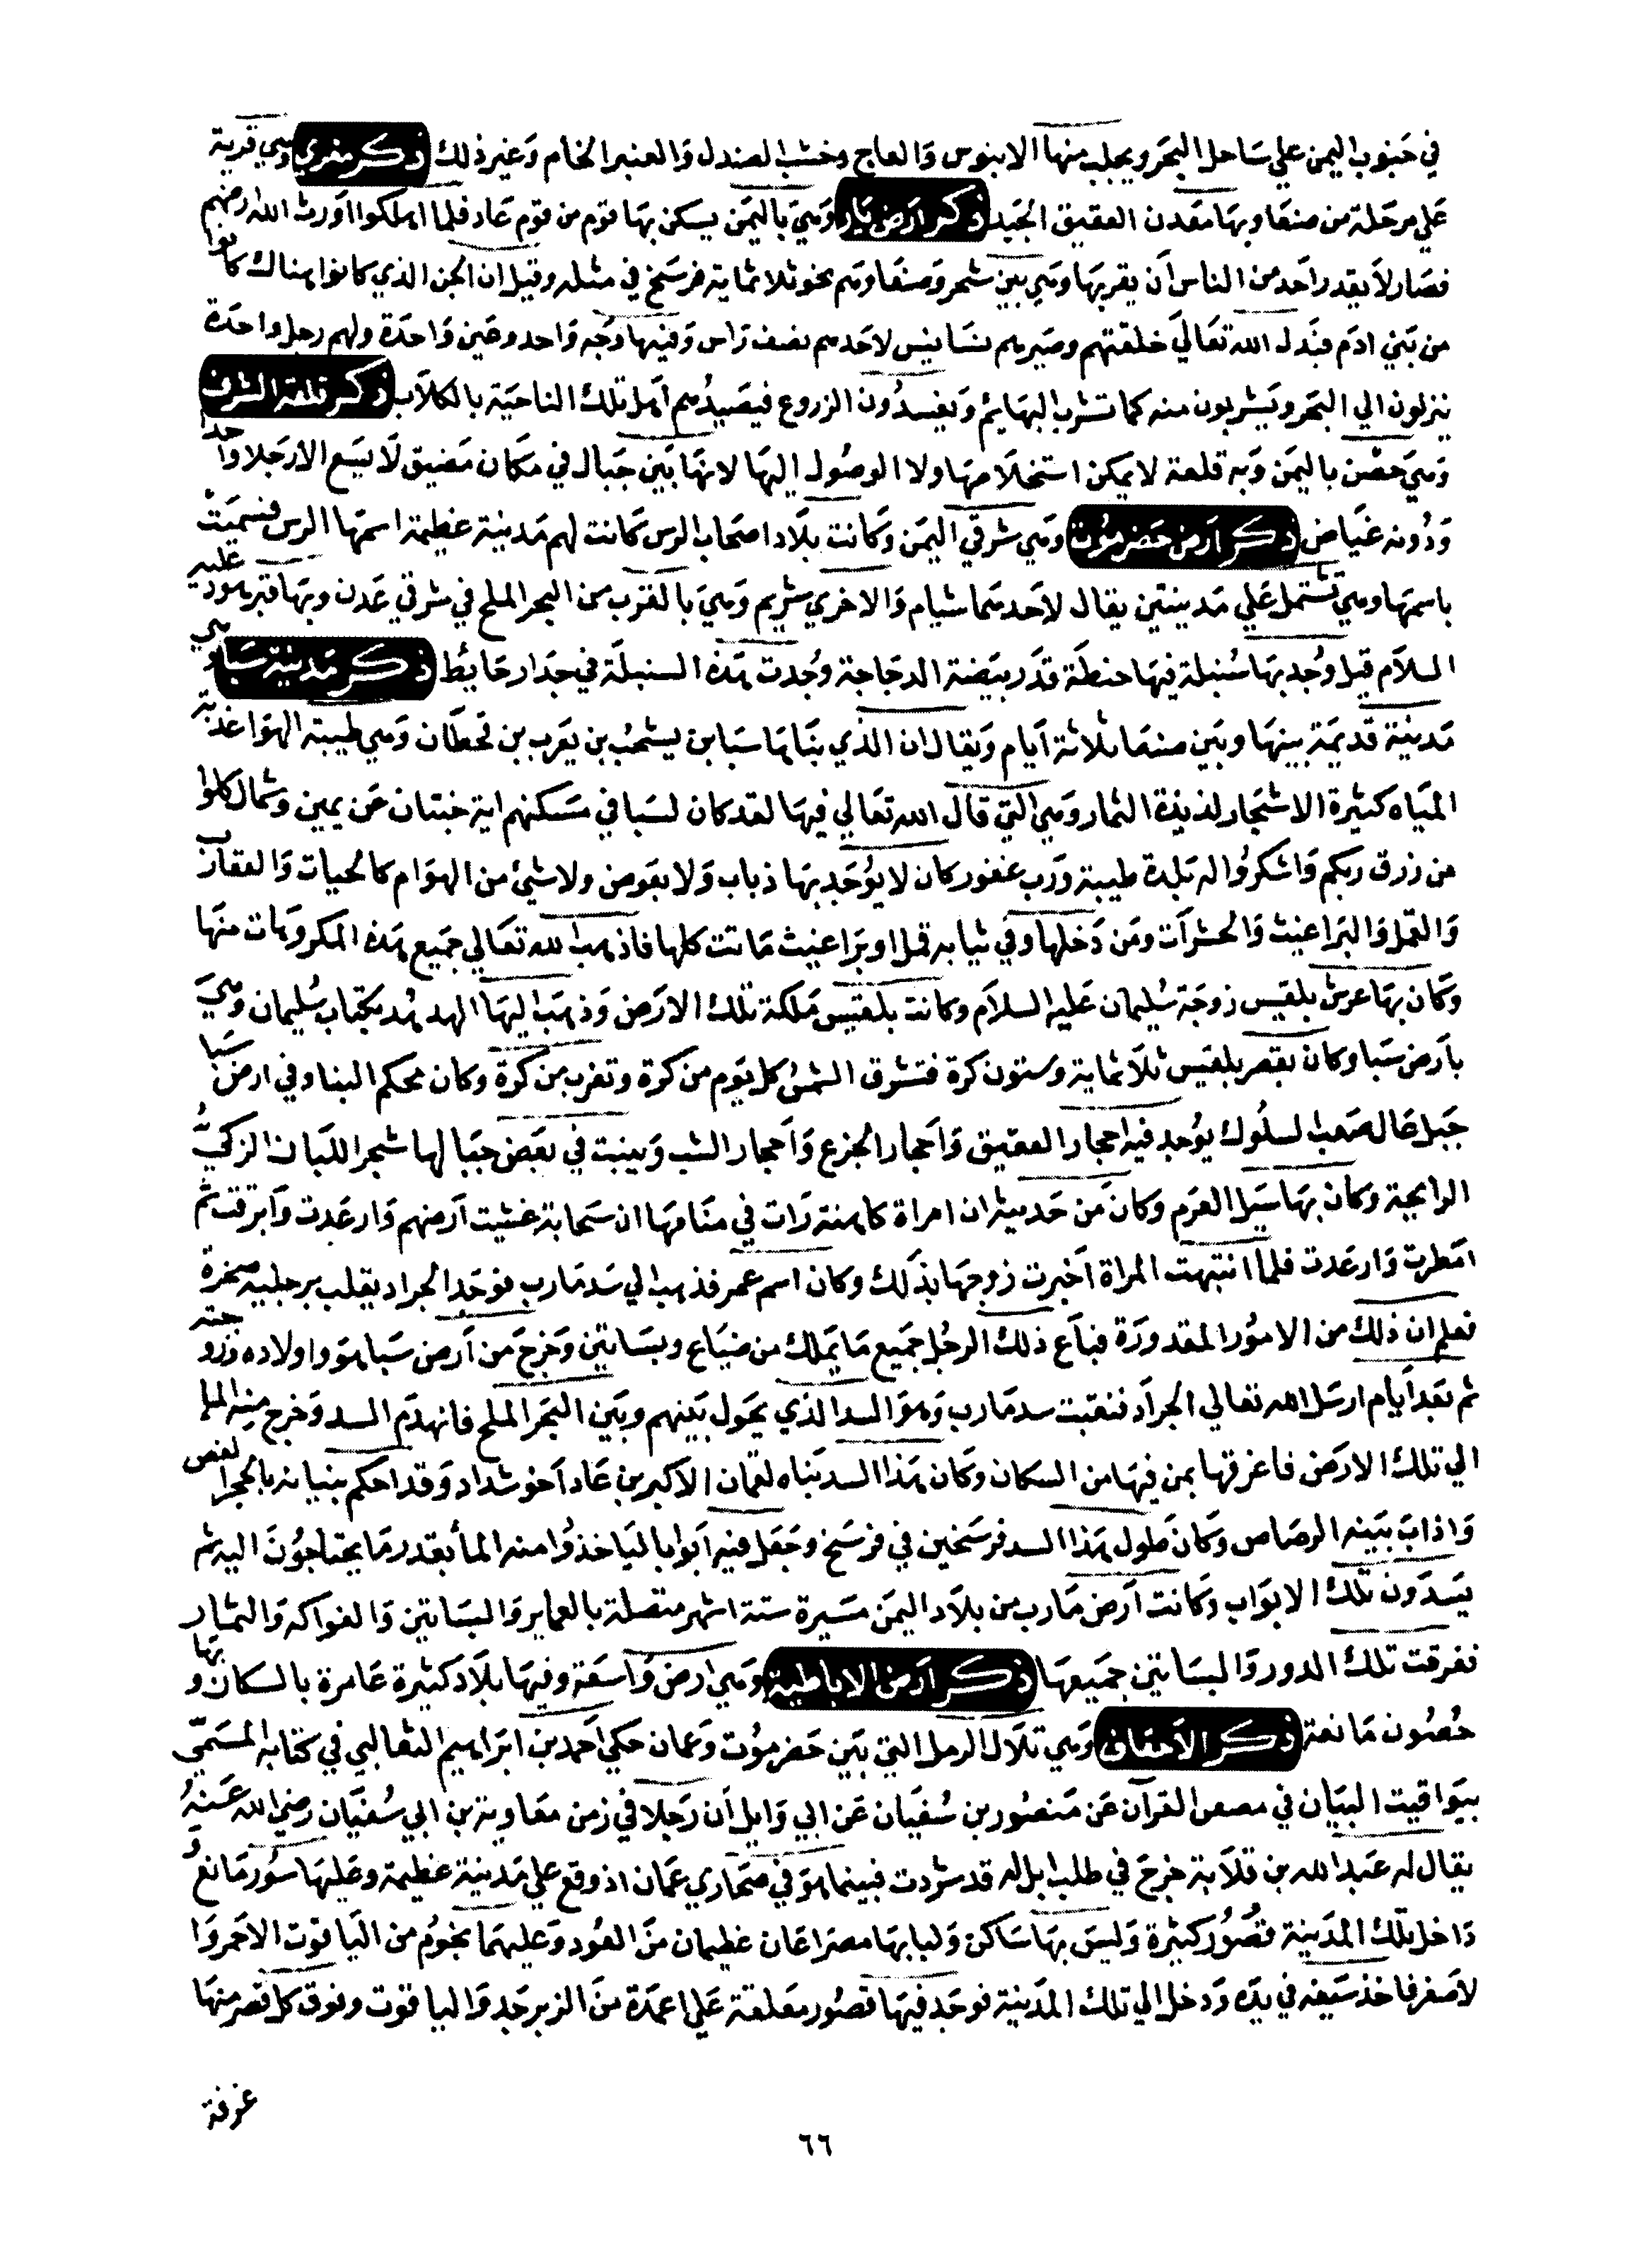 في جنوب اليمن علي ساحل البحر ويجلب منها الابنوس والعاج وخشب الصندل والعنبر الخام وغير ذلك ذكر مقري وهي قرية
علي مرحلة من صنعا وبها معدن العقيق الجيد ذكر ارض بار وهي باليمن يسكن بها قوم من قوم عاد فلما اهلكوا اورث الله ارضهم
فصار لا يقدر احد من الناس ان يقربها وهي بين شحر وصنعا وهم نحو ثلاثماية فرسخ في مثله وقيل ان الجن الذي كانوا هناك كانوا
من بني ادم فبدل الله تعالي خلقتهم وصيرهم نسانيس لاحدهم نصف راس وفيها وجه واحد وعين واحدة ولهم رجل واحدة
ينزلون الي البحر ويشربون منه كما تشرب البهايم ويفسدون الزروع فيصيدهم اهل تلك الناحية بالكلاب ذكر قلعة الشرف
وهي حصن باليمن وبه قلعة لا يمكن استخلاصها ولا الوصول اليها لانها بين جبال في مكان مضيق لا يسع الا رجلا واحدا
ودونه غياض ذكر ارض حضرموت وهي شرقي اليمن وكانت بلاد اصحاب الرس كانت لهم مدينة عظيمة اسمها الرس فسميت
باسمها وهي تشتمل علي مدينتين يقال لاحدهما شبام والاخري تريم وهي بالقرب من البحر الملح في شرقي عدن وبها قبر هود عليه
السلام قيل وجد بها سنبلة فيها حنطة قدر بيضة الدجاجة وجدت هذه السنبلة في جدار حايط ذكر مدينة سبا وهي
مدينة قديمة بينها وبين صنعا ثلاثة ايام ويقال ان الذي بناها سبا بن يشجب بن يعرب بن قحطان وهي طيبة الهوا عذبة
المياه كثيرة الاشجار لذيذة الثمار وهي التي قال الله تعالي فيها لقد كان لسبا في مسكنهم اية جنتان عن يمين وشمال كلوا
من رزق ربكم واشكروا له بلدة طيبة ورب غفور كان لا يوجد بها ذباب ولا بعوض ولا شئ من الهوام كالحيات والعقارب
والقمل والبراغيث والحشرات ومن دخلها وفي ثيابه قمل او براغيث ماتت كلها فاذهب الله تعالي جميع هذه المكروهات منها
وكان بها عرش بلقيس زوجة سليمان عليه السلام وكانت بلقيس ملكة تلك الارض وذهب اليها الهدهد بكتاب سليمان وهي
بارض سبا وكان بقصر بلقيس ثلاثماية وستون كرة فتشرق الشمس كل يوم من كرة وتغرب من كرة وكان محكم البنا وفي ارض سبا
جبل عال صعب السلوك يوجد فيه احجار العقيق واحجار الجزع واحجار الشب وينبت في بعض جبالها شجر اللبان الزكي
الرايحة وكان بها سيل العرم وكان من حديثه ان امراة كاهنة رات في منامها ان سحابة غشيت ارضهم وارعدت وابرقت ثم
امطرت وارعدت فلما انتبهت المراة اخبرت زوجها بذلك وكان اسم عمر فذهب الي سد مارب فوجد الجراد يقلب برجليه صخرة
فعلم ان ذلك من الامور المقدورة فباع ذلك الرجل جميع ما يملك من ضياع وبساتين وخرج من ارض سبا هو واولاده وزوجته
ثم بعد ايام ارسل الله تعالي الجراد فنقبت سد مارب وهو السد الذي يحول بينهم وبين البحر الملح فانهدم السد وخرج منه الما
الي تلك الارض فاغرقها بمن فيها من السكان وكان هذا السد بناه لقمان الاكبر بن عاد اخو شداد وقد احكم بنيانه بالحجر
واذاب بينه الرصاص وكان طول هذا السد فرسخين في فرسخ وجعل فيه ابوابا لياخذوا منه الما بقدر ما يحتاجون اليه ثم
يسدون تلك الابواب وكانت ارض مارب من بلاد اليمن مسيرة ستة اشهر متصلة بالعماير والبساتين والفواكه والثمار
فغرقت تلك الدور والبساتين جميعها ذكر ارض الاباطية وهي ارض واسعة وفيها بلاد كثيرة عامرة بالسكان وبها
حصون مانعة ذكر الاحقاف وهي تلال الرمل التي بين حضرموت وعمان حكي احمد بن ابراهيم الثعالبي في كتابه المسمي
بيواقيت البيان في قصص القرآن عن منصور بن سفيان عن ابي وايل ان رجلا في زمن معاوية بن ابي سفيان رضي الله عنه
يقال له عبد الله بن قلابة خرج في طلب ابل له قد شردت فبينما هو في صحاري عمان اذ وقع علي مدينة عظيمة وعليها سور مانع
داخل تلك المدينة قصور كثيرة وليس بها ساكن ولبابها مصراعان عظيمان من العود وعليهما نجوم من الياقوت الاحمر وا
لاصفر فاخذ سيفه في يده ودخل الي تلك المدينة فوجد فيها قصور معلقة علي اعمدة من الزبرجد والياقوت وفوق كل قصر منها
غرفة
٦٦